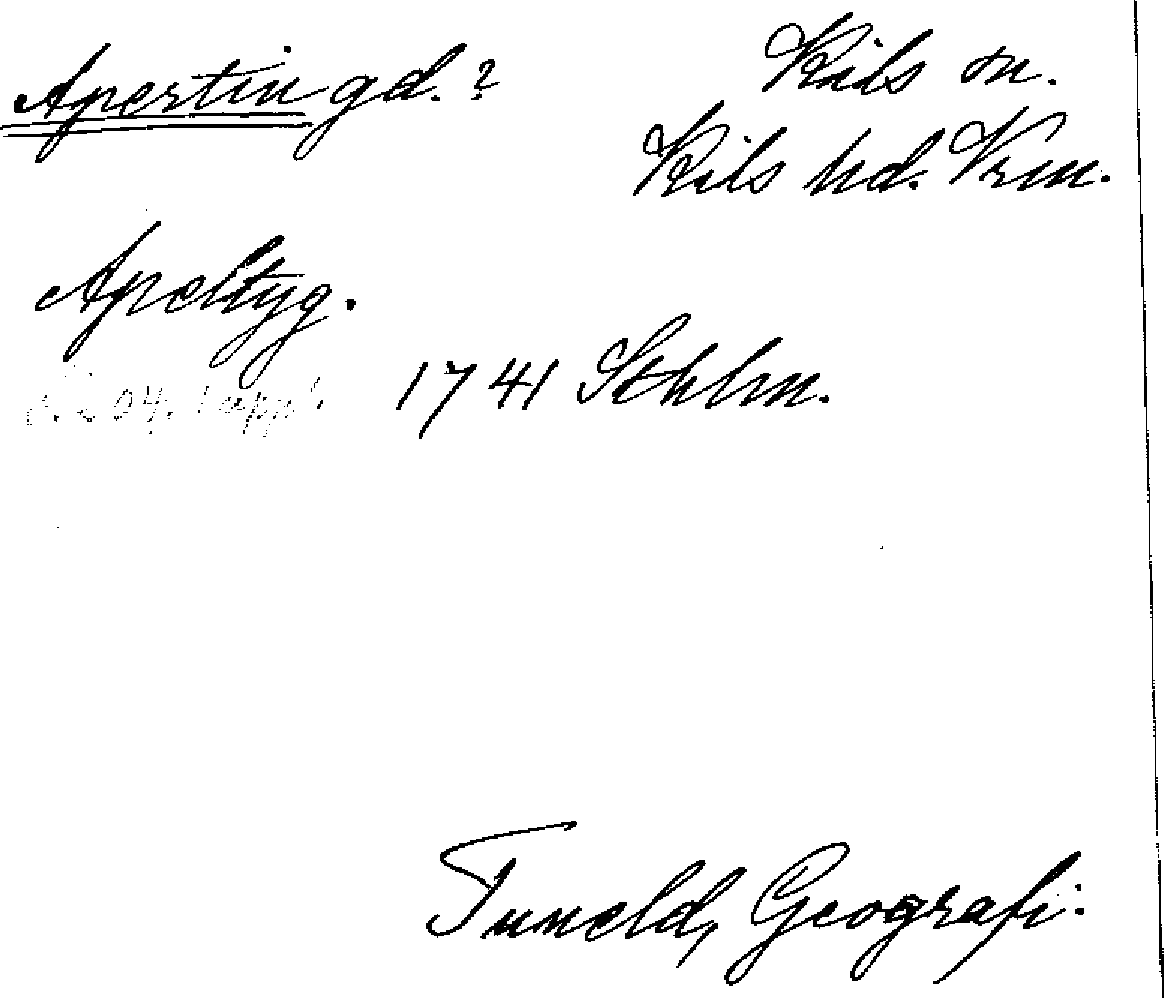 Apertin gd.?
Kils sn.
Kils hd. Vrm.
Apeltyg.
1741 Sthlm.
Tuneld, Geografi.